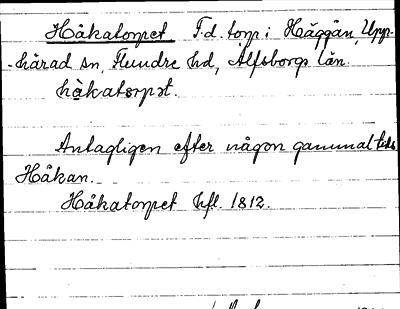 Håkatorpet F.d. torp i Häggån, Upp-
-härad sn, Flundre hd, Älfsborgs län.
hàkatɷrpət.
Antagligen efter någon gammal tids
Håkan.
Håkatorpet hfl. 1812.